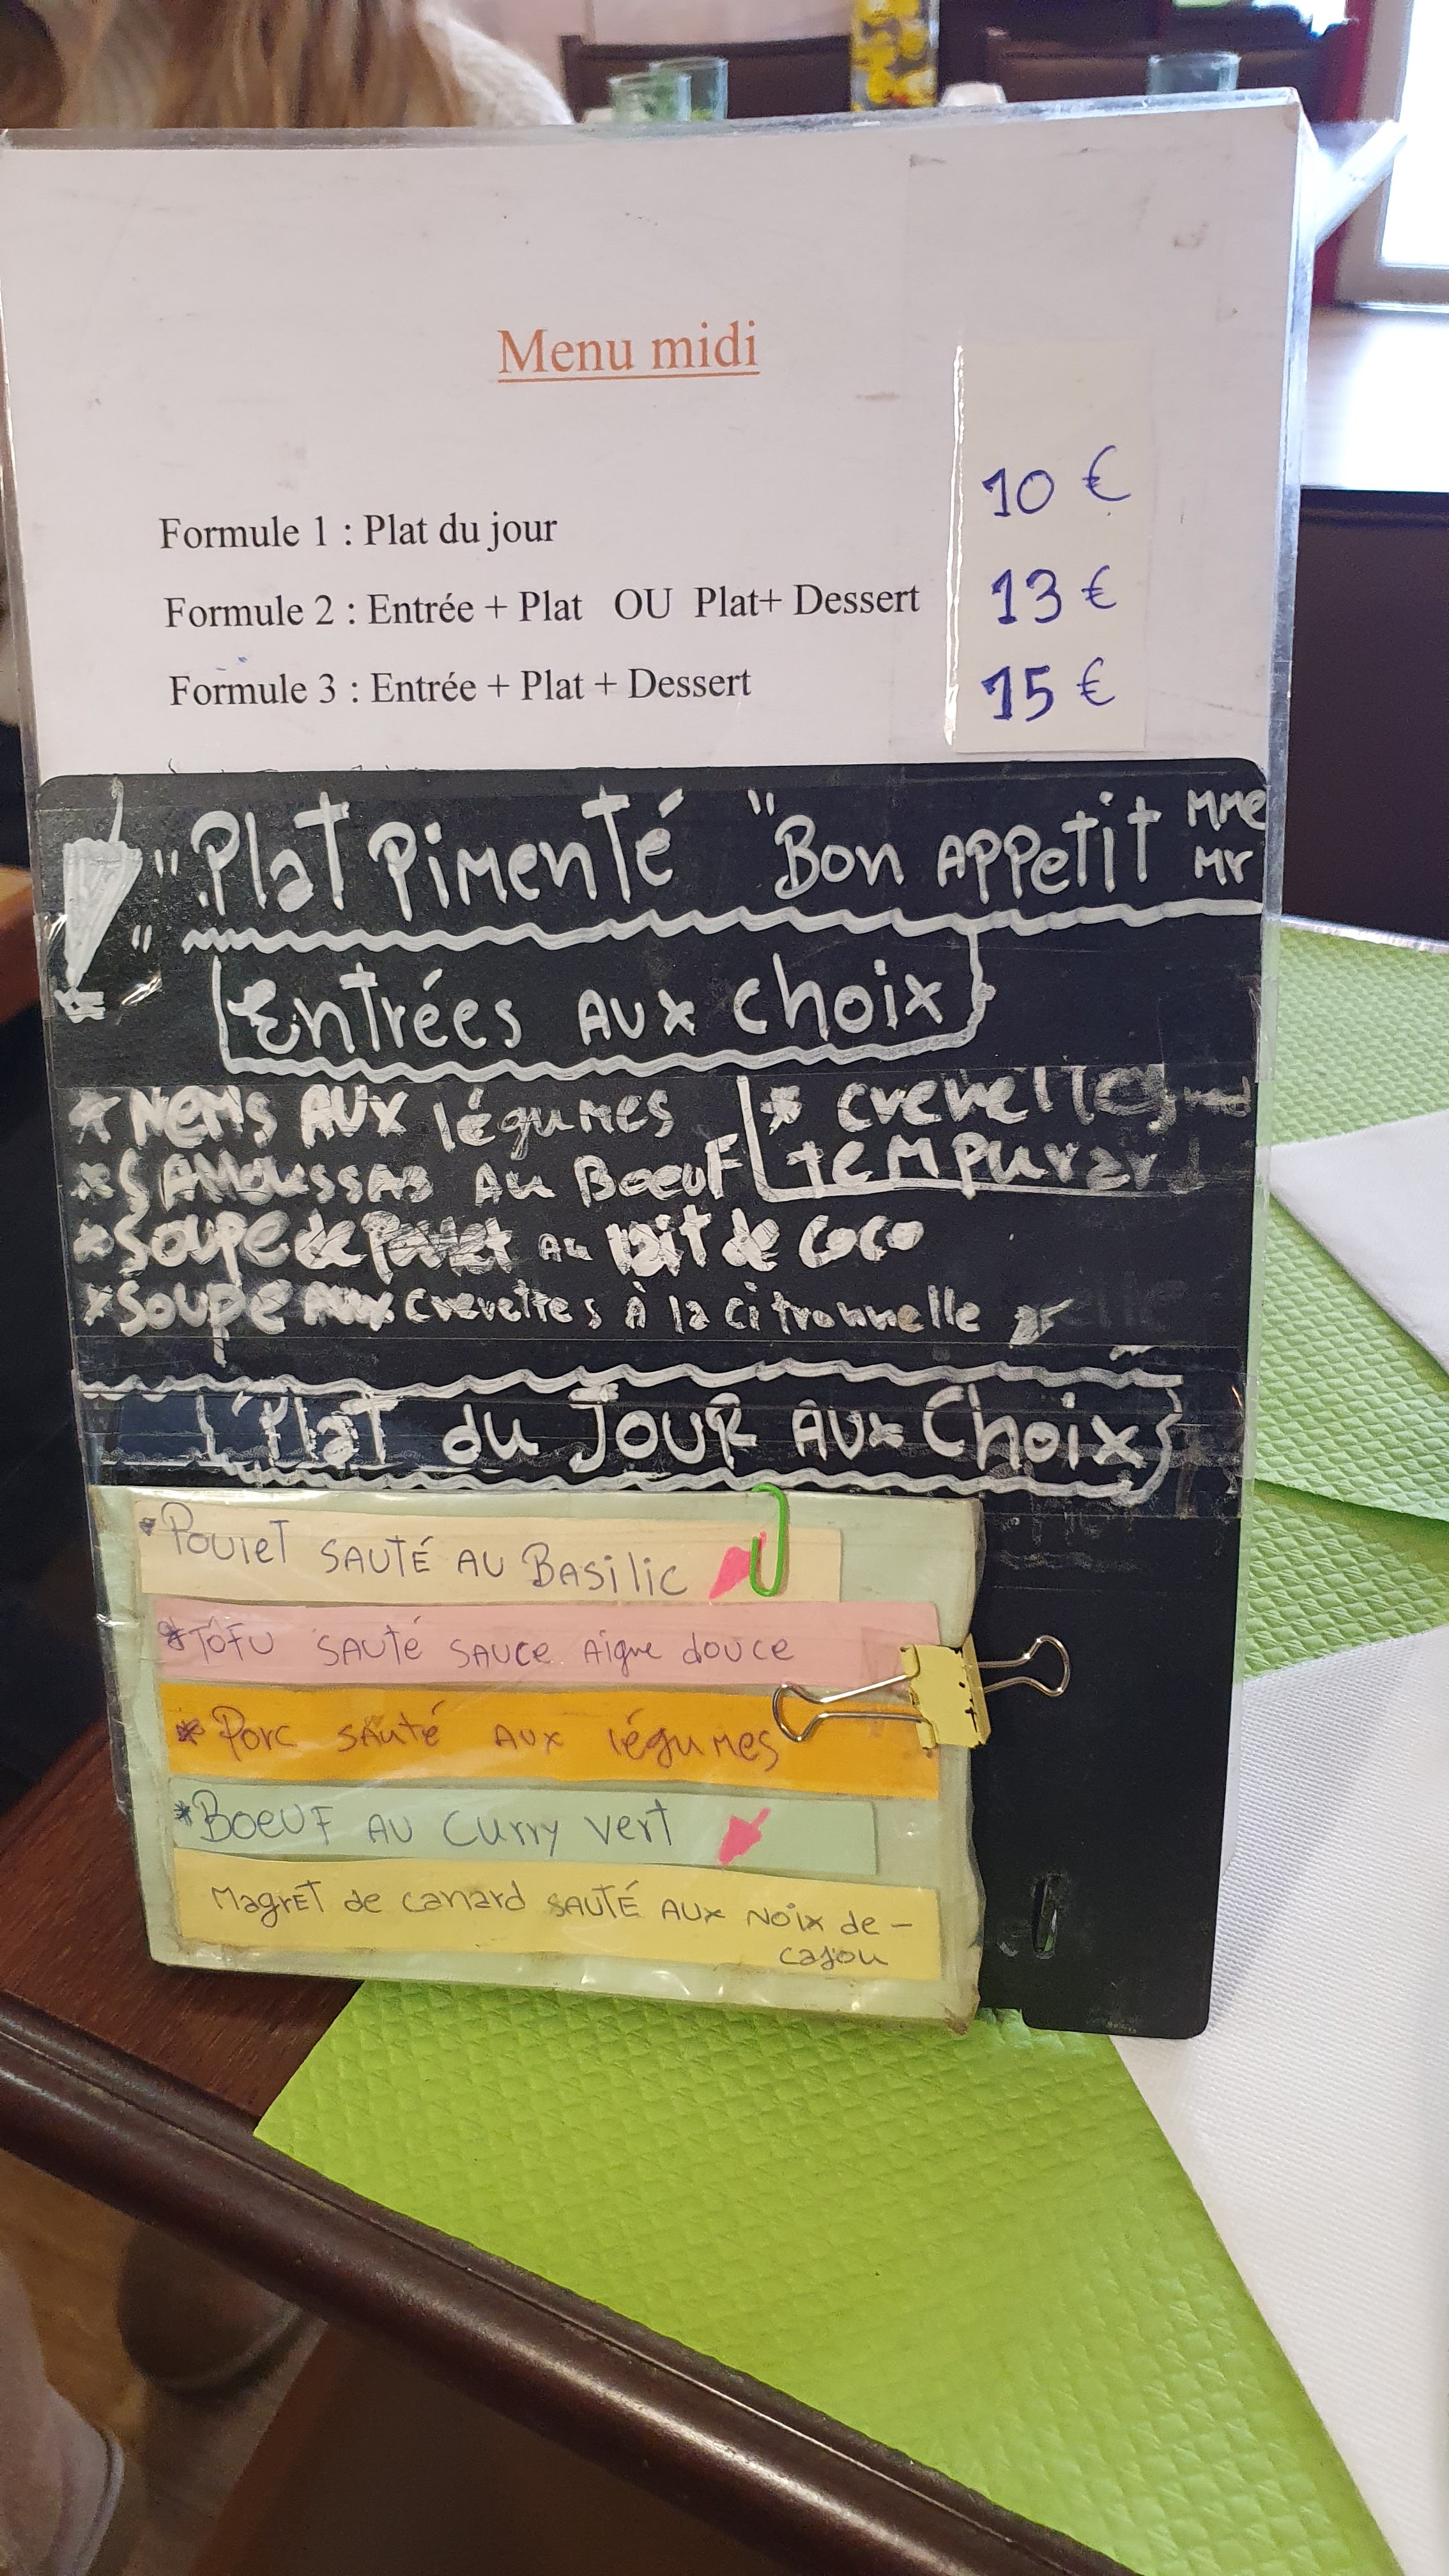 Menu midi
Formule 1 : Plat du jour 10 €
Formule 2 : Entrée + Plat OU Plat+ Dessert 13 €
Formule 3 : Entrée + Plat + Dessert 15 €
" Plat Pimenté " Bon APPetit Mme Mr
Entrées AUX choix
* Nems AUX légumes
* SAMOUSSAS AU BoeuF
* crevettes
tempura
* Soupe de Poulet au lait de coco
* Soupe aux crevettes à la citronnelle *
Plat du JOUR AUX Choix
* Poulet SAUTÉ AU Basilic
* TôFU SAUTé SAUCE Aigre douce
* Porc sauté AUX légumes
* BOEUF AU Curry vert
Magret de canard SAUTÉ AUX NOIX de -
cajou